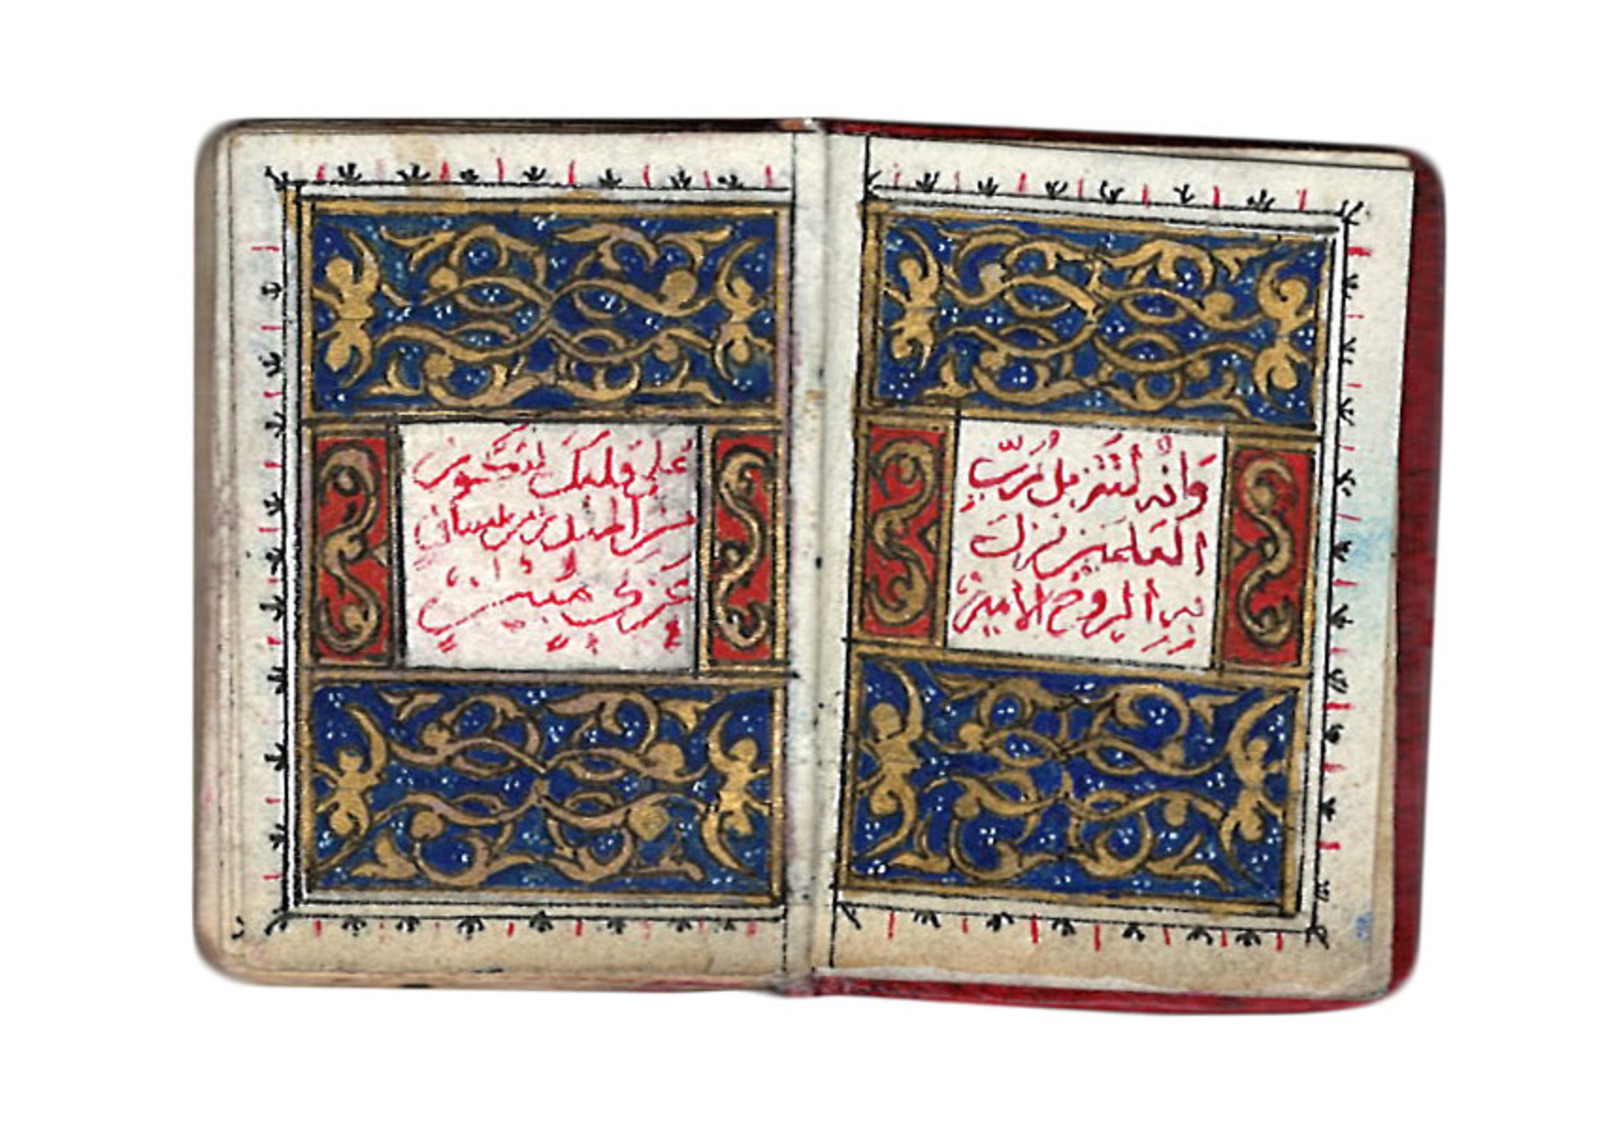 وَإِنَّهُ لَتَنزِيلُ رَبِّ
الْعَلَمِينَ نَزَلَ
بِهِ الرُّوحُ الْأَمِينُ
عَلَى قَلْبِكَ لِتَكُونَ
مِنَ الْمُنذِرِينَ بِلِسَانٍ
عَرَبِيٍّ مُبِينٍ